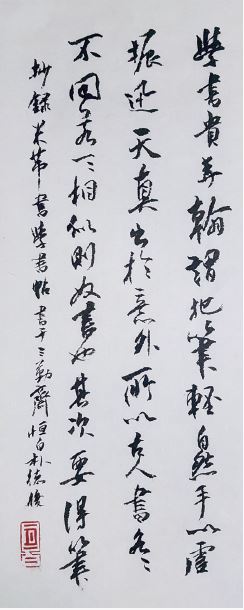 學書貴弄翰謂把筆輕自然手心虛
振迅天真出於意外所以古人書各
不同若一一相似則奴書也其次要得筆
抄錄米芾書學書帖 書于三勤齋 恒白朴德俊